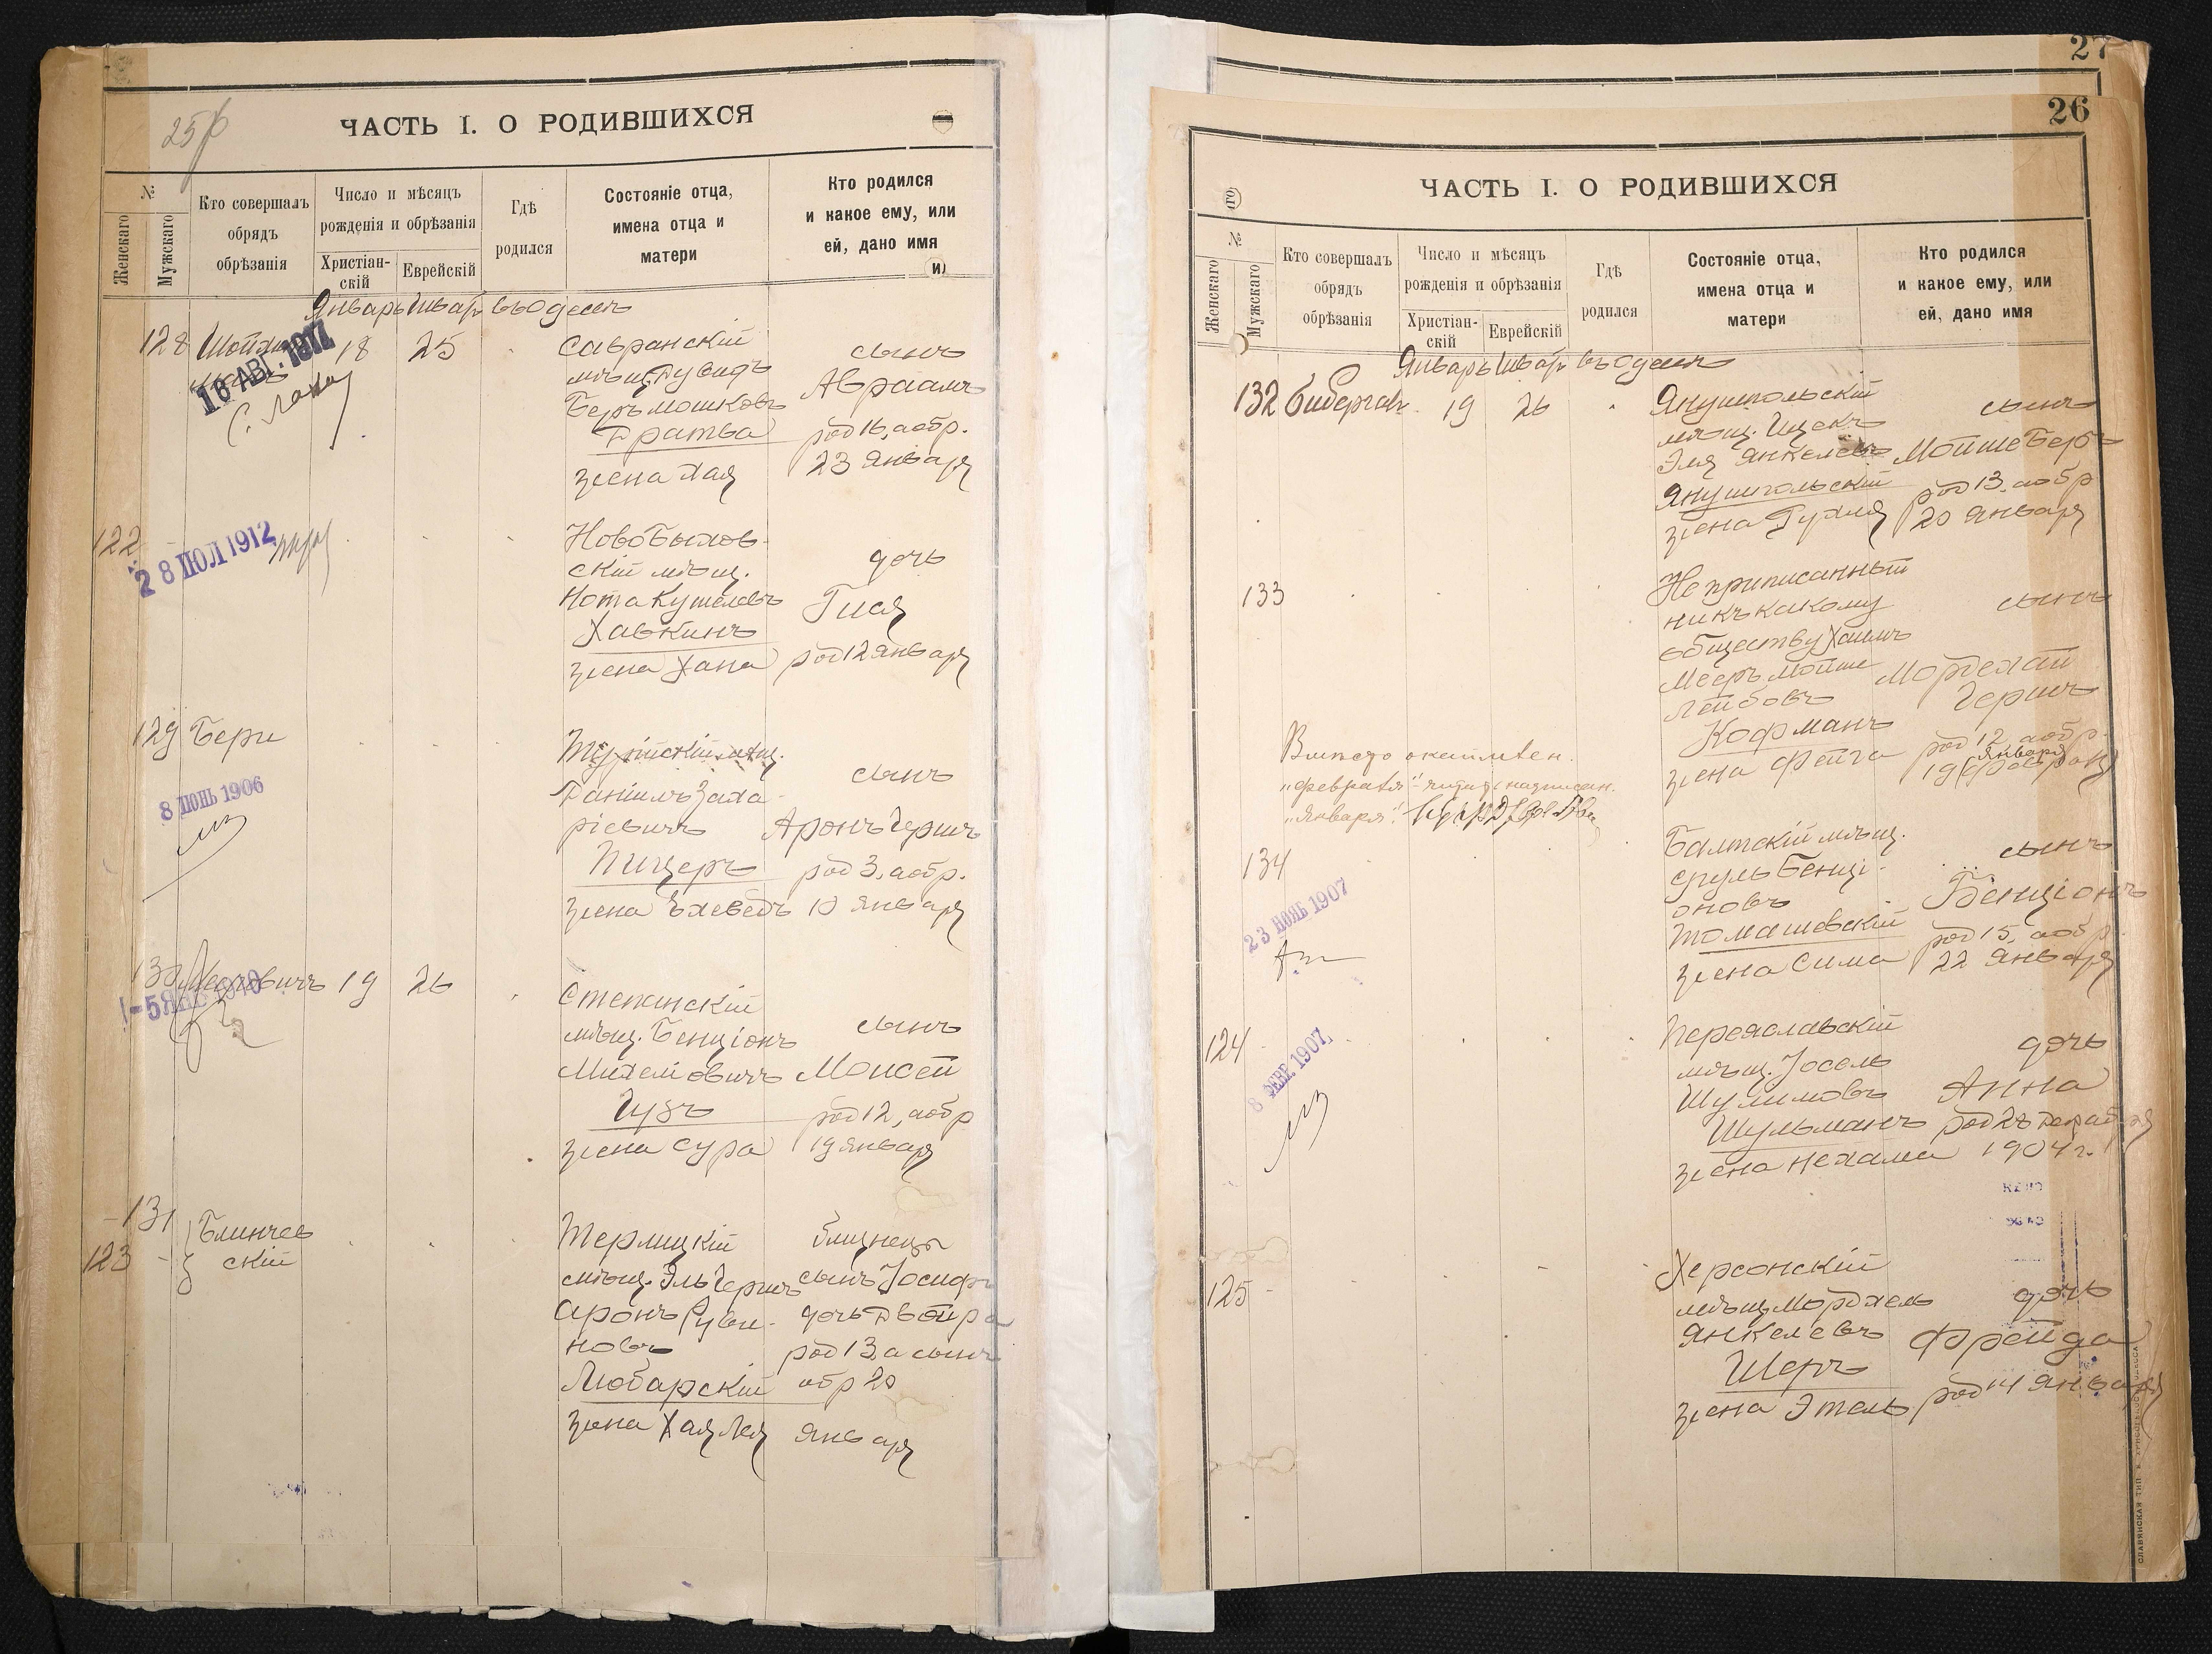 25
ЧАСТЬ I. О РОДИВШИХСЯ
№
Женскаго
Мужскаго
Кто совершалъ
обрядъ
обрѣзанія
Число и мѣсяцъ
рожденія и обрѣзанія
Христіан-
скій
Еврейскій
Гдѣ
родился
Состояніе отца,
имена отца и
матери
Кто родился
и какое ему, или
ей, дано имя
Январь Шватъ въ Одессѣ
128 18 25
16 АВГ. 1911
Савранскій
мѣщ. Дувидъ
Беръ Мошковъ
Дратва
жена Хая
сынъ
Авраамъ
род 16, а обр.
23 Января
122
28 ІЮЛ 1912
Новобыхов-
скій мѣщ.
Нота Кушелевъ
Хавкинъ
жена Хана
дочь
Гися
род 12 Января
129 Бери
8 ІЮНЬ 1906
мѣщ.
Даніилъ Заха-
ріевичъ
Пицеръ
жена Ѣхеведъ
сынъ
Аронъ Гершъ
род 3, а обр.
10 Января
130 19 26
Степанскій
мѣщ. Бенціонъ
Михелiовичъ
Гузъ
жена Сура
сынъ
Моисей
род 12, а обр
19 Января
131
123
Блинчев
скій
Терлицкій
мѣщ. Эль Гершъ
Аронъ Руви-
новъ
Любарскій
жена Хая Лея
близнецы
сынъ Іосифъ
дочь Двойра
род 13 а сынъ
обр 20
Января
27
26
ЧАСТЬ I. О РОДИВШИХСЯ
№
Женскаго
Мужскаго
Кто совершалъ
обрядъ
обрѣзанія
Число и мѣсяцъ
рожденія и обрѣзанія
Христіан-
скій
Еврейскій
Гдѣ
родился
Состояніе отца,
имена отца и
матери
Кто родился
и какое ему, или
ей, дано имя
Январь Шватъ въ Одессѣ
132 19 26
Янушпольскій
мѣщ. Ицекъ
Эля Янкелевъ
Янушпольскій
жена Рухля
сынъ
Мойше Беръ
род 13, а обр
20 Января
133
Неприписанный
никъ какому
обществу Хаимъ
Мееръ Мойше
Лейбовъ
Кофманъ
жена Фейга
сынъ
Мордехай
Гершъ
род 12, а обр.
Января
19
Вмѣсто окаймлен.
„февраля“ читать надписан.
„Января“.
134
23 НОЯБ 1907
Балтскій мѣщ.
Сруль Бенці-
оновъ
Томашевскій
жена Сима
сынъ
Бенціонъ
род 15, а обр.
22 Января
124
8 ФЕВР. 1907
Переяславскій
мѣщ. Іосель
Шулимовъ
Шульманъ
жена Нехама
дочь
Анна
декабря
1904 г.
125
Херсонскій
мѣщ. Мордхель
Янкелевъ
Шеръ
жена Этель
дочь
Фрейда
род 14 Января